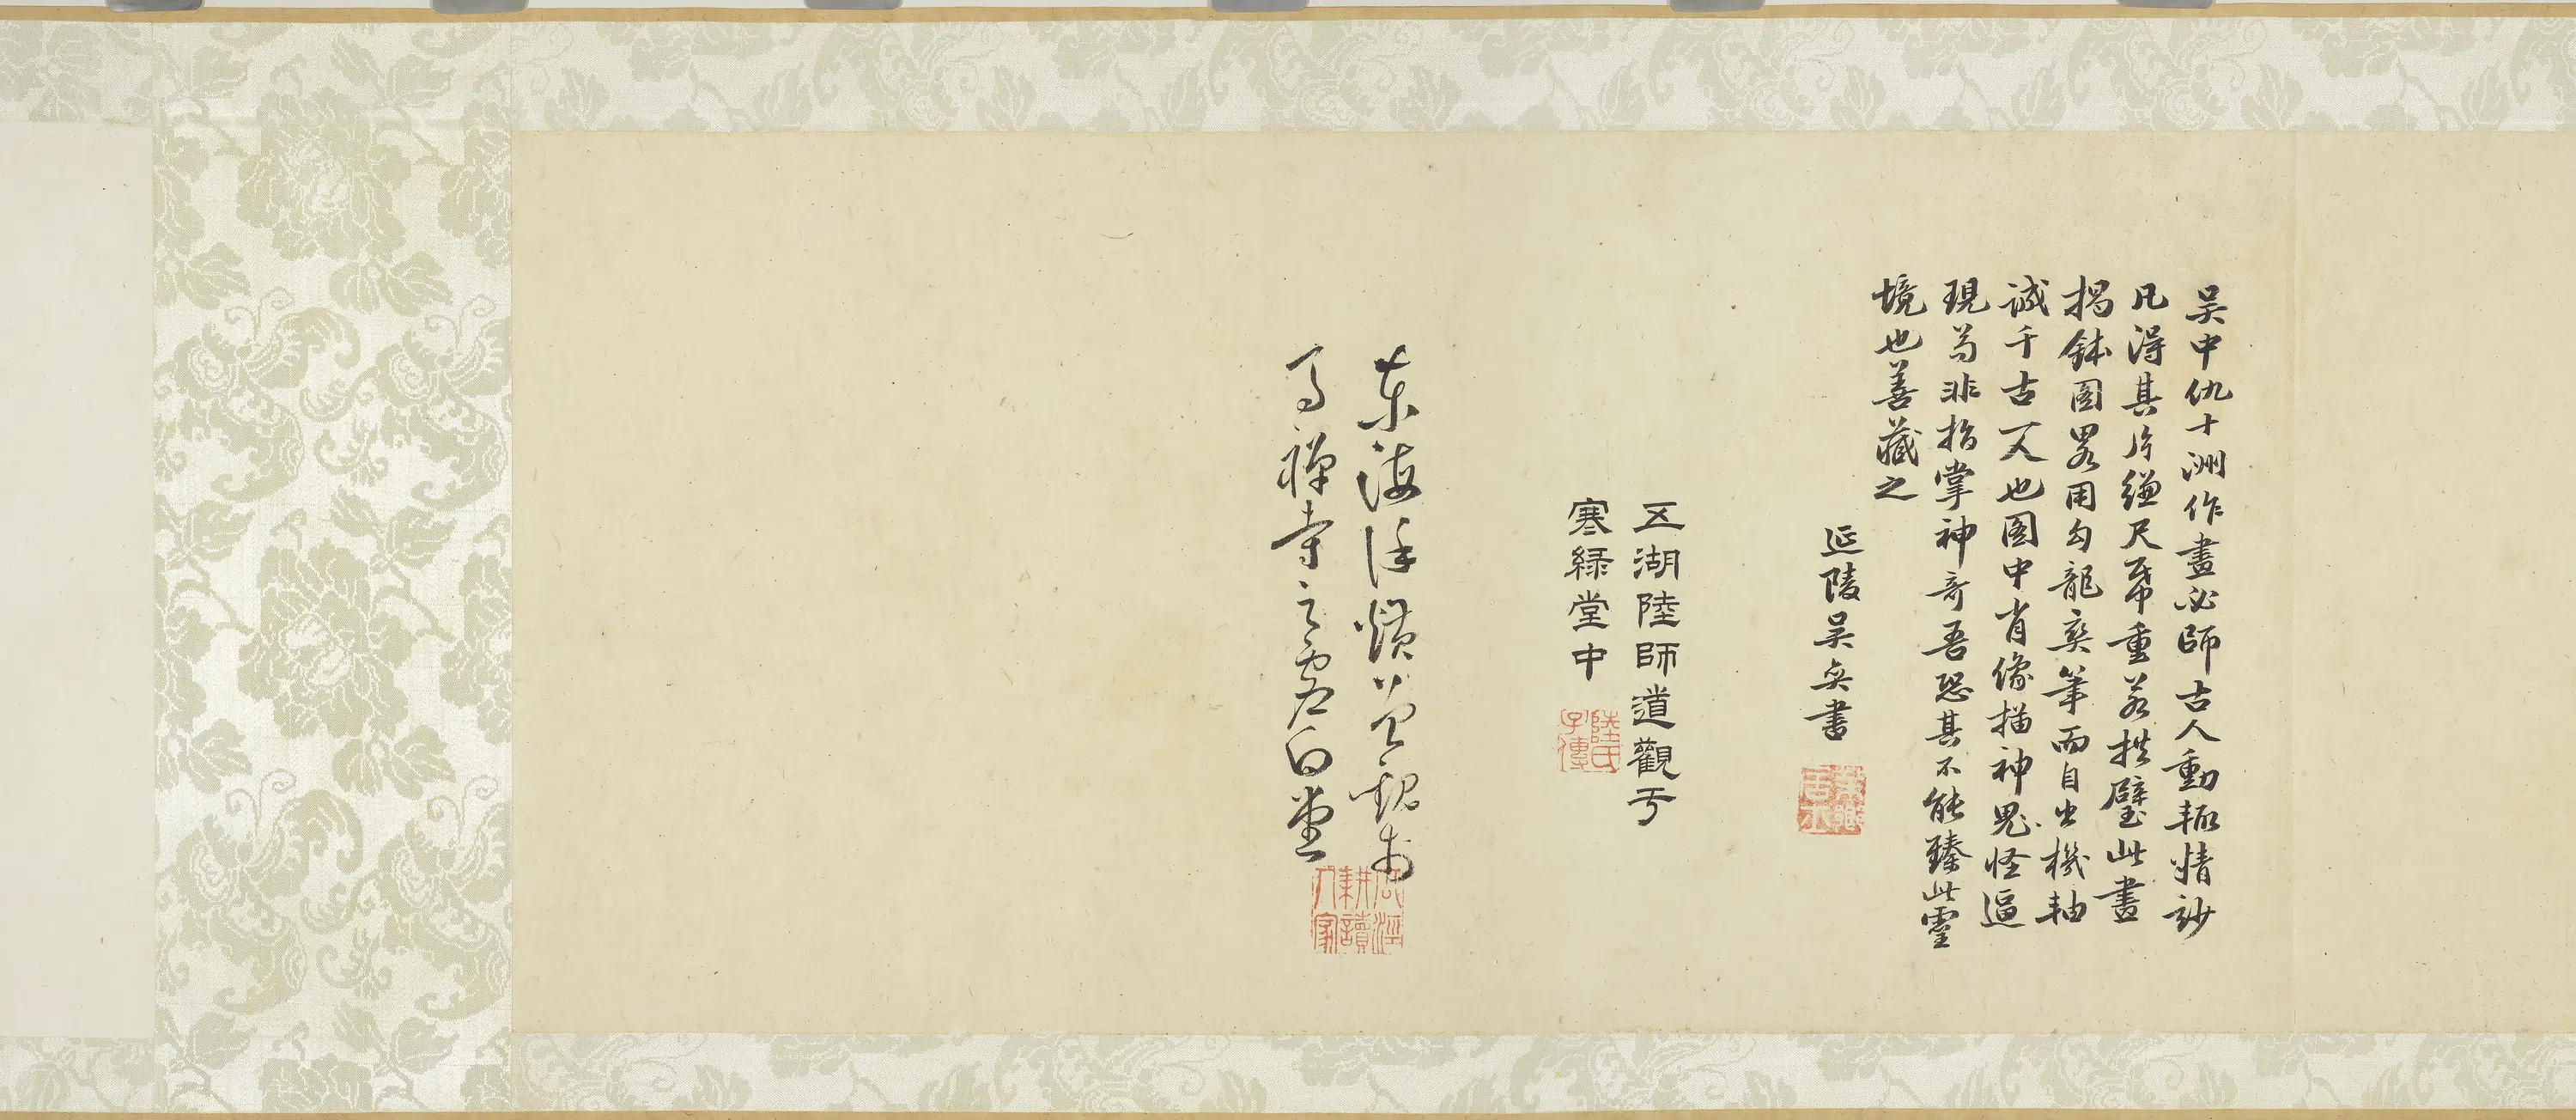 吴中仇十洲作畫必師古人動輒精妙
凡得其片縑尺帋重若拱璧此畫
揭鉢圖畧用勾龍爽筆而自出機軸
誠千古一人也圖中肖像描神鬼怪逼
現若非指掌神奇吾恐其不能臻此靈
境也善藏之
延陵吴奕書
五湖陸師道觀于
寒緑堂中
陸氏子傳
東海徐
馬禪寺之虛白堂
耕讀人家